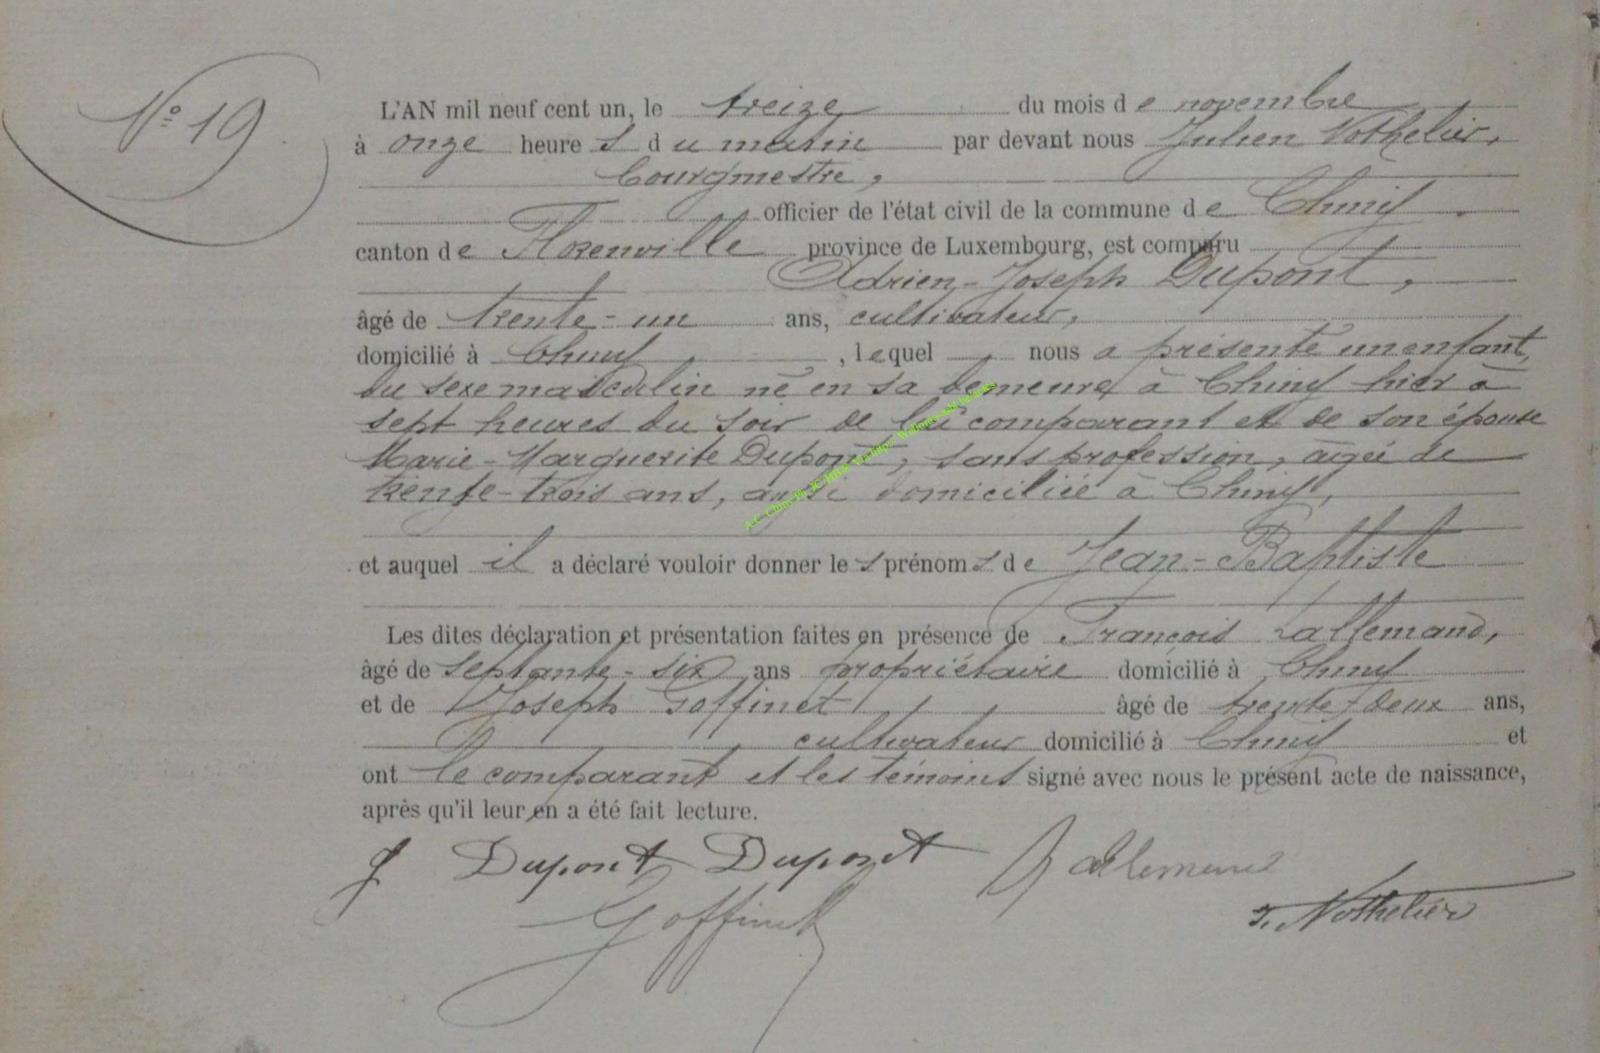 N° 19
L'AN mil neuf cent un, le treize du mois de novembre
à onze heures du matin par devant nous Julien Nothelier,
bourgmestre,
officier de l'état civil de la commune de Chiny
canton de Florenville province de Luxembourg, est comparu
Adrien-Joseph Dupont,
âgé de trente-un ans, cultivateur,
domicilié à Chiny, lequel nous a présenté un enfant,
du sexe masculin né en sa demeure à Chiny hier à
sept heures du soir de lui comparant et de son épouse
Marie-Marguerite Dupont, sans profession, âgée de
trente-trois ans, aussi domiciliée à Chiny,
et auquel il a déclaré vouloir donner les prénoms de Jean-Baptiste
Les dites déclaration et présentation faites en présence de François Lallemand,
âgé de septante-six ans propriétaire domicilié à Chiny
et de Joseph Goffinet âgé de trente-deux ans,
cultivateur domicilié à Chiny et
ont le comparant et les témoins signé avec nous le présent acte de naissance,
après qu'il leur en a été fait lecture.
Dupont Dupont Lallemand
Goffinet J. Nothelier